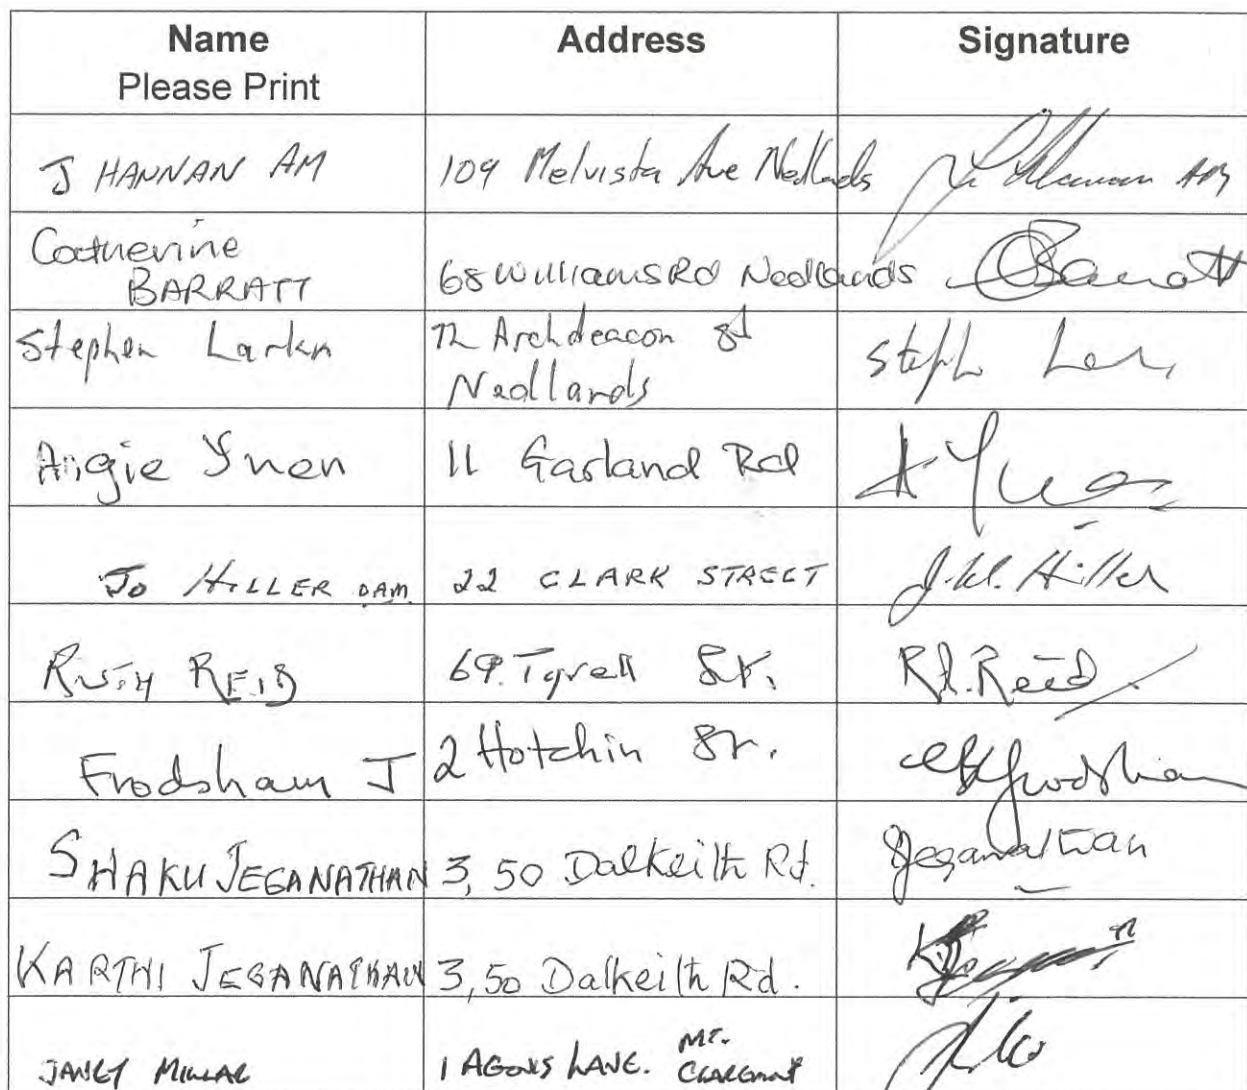 Name
Please Print
Address
Signature
J HANNAN AM
109 Melvista Ave Nedlands
AM
Catherine
BARRATT
68 Williams Rd Nedlands
Barratt
Stephen Larkin
72 Archdeacon St
Nedlands
Angie Yuen
11 Garland Rd
A Yuen
Jo HILLER OAM
22 CLARK STREET
Hiller
RUTH REID
69 Tyrell St.
Reid
Frodsham J
2 Hotchin St.
Frodsham
SHAKU JEGANATHAN
3, 50 Dalkeith Rd.
Jeganathan
KARTHI JEGANATHAN
3, 50 Dalkeith Rd.
JANET MILLAR
1 LANE. MT.
CLAREMONT